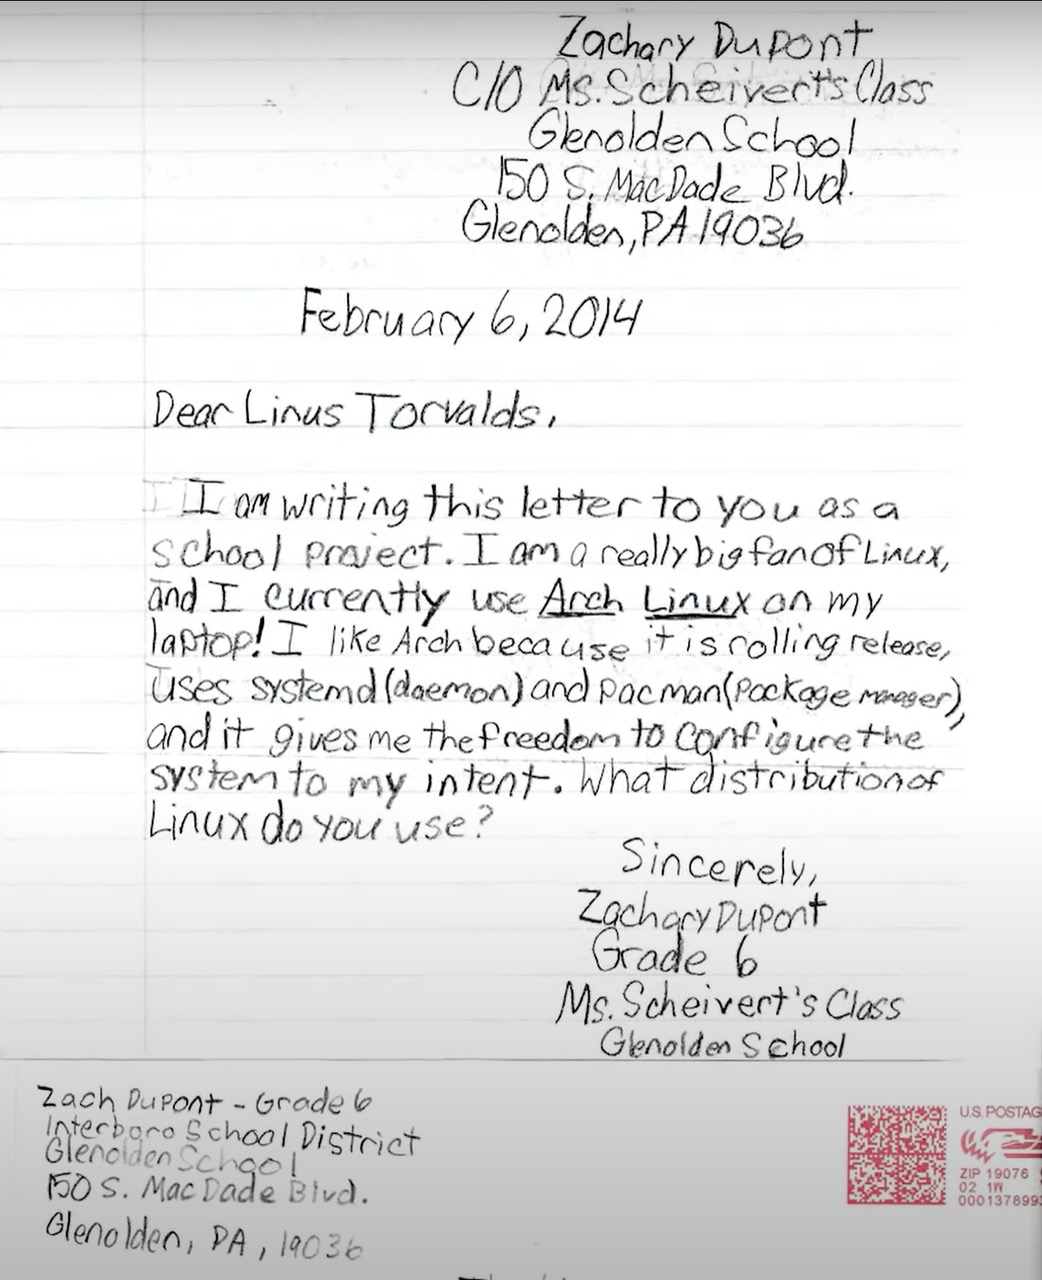 Zachary Dupont
C/O Ms. Scheivert's Class
Glenolden School
150 S. MacDade Blvd.
Glenolden, PA 19036
February 6, 2014
Dear Linus Torvalds,
I am writing this letter to you as a
school project. I am a really big fan of Linux,
and I currently use Arch Linux on my
laptop! I like Arch because it is rolling release,
uses systemd (daemon) and pacman (package manager),
and it gives me the freedom to configure the
system to my intent. What distribution of
Linux do you use?
Sincerely,
Zachary Dupont
Grade 6
Ms. Scheivert's Class
Glenolden School
Zach Dupont - Grade 6
Interboro School District
Glenolden School
150 S. MacDade Blvd.
Glenolden, PA, 19036
U.S. POSTAG
ZIP 19076
02 1W
000137899